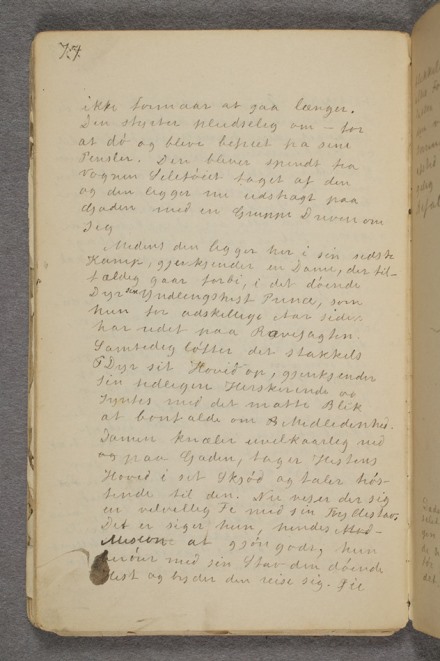 74
ikke formaar at gaa længer.
Den styrter pludselig om – for
at dø og blive befriet fra sine
Pensler. Den bliver spændt fra
Vognen Seletøiet taget af den
og den ligger nu udstragt paa
Gaden med en Gruppe Drivere om
sig
Medens den ligger her i sin sidste
Kamp, gjenkjender en Dame, der til-
fældig gaar forbi, i det døende
Dyr sin Yndlingshest Prince, som
hun for adskillige Aar siden
har redet paa Rævejagten.
Samtidig løfter det stakkels
Dyr sit Hoved op, gjenkjender
sin tidligere Herskerinde og
synes med det matte Blik
at bønfalde om Medlidenhed.
Damen knæler uvilkaarlig ned
og paa Gaden, tager Hestens
Hoved i sit Skjød og taler trøs-
tende til den. Nu viser der sig
en velvillig Fe med sin Tryllestav.
Det er siger hun, hendes
Mission at gjøre godt, hun
berører med sin Stav den døende
Hest og byder den reise sig.